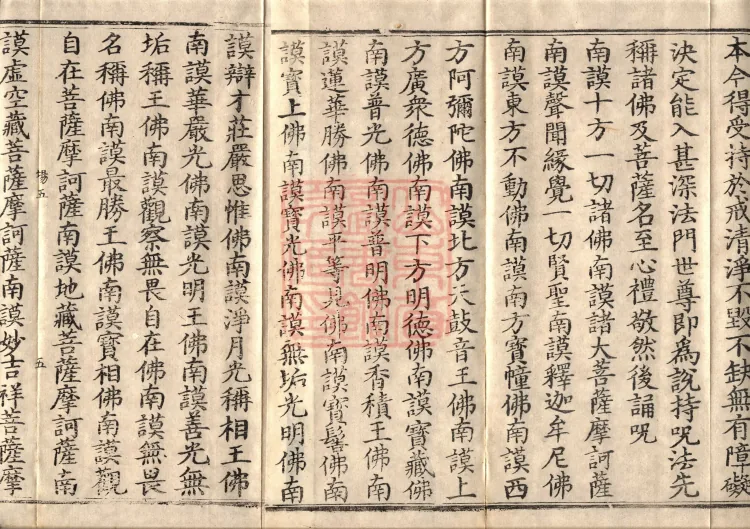 本今得受持於戒清淨不毀不缺無有障礙
決定能入甚深法門世尊即為說持呪法先
稱諸佛及菩薩名至心禮敬然後誦呪
南謨十方一切諸佛南謨諸大菩薩摩訶薩
南謨聲聞緣覺一切賢聖南謨釋迦牟尼佛
南謨東方不動佛南謨南方寶幢佛南謨西
方阿彌陀佛南謨北方天鼓音王佛南謨上
方廣衆德佛南謨下方明德佛南謨寶藏佛
南謨普光佛南謨普明佛南謨香積王佛南
謨蓮華勝佛南謨平等見佛南謨寶髻佛南
謨寶上佛南謨寶光佛南謨無垢光明佛南
謨辯才莊嚴思惟佛南謨淨月光稱相王佛
南謨華嚴光佛南謨光明王佛南謨善光無
垢稱王佛南謨觀察無畏自在佛南謨無畏
名稱佛南謨最勝王佛南謨寶相佛南謨觀
自在菩薩摩訶薩南謨地藏菩薩摩訶薩南
謨虛空藏菩薩摩訶薩南謨妙吉祥菩薩摩
五